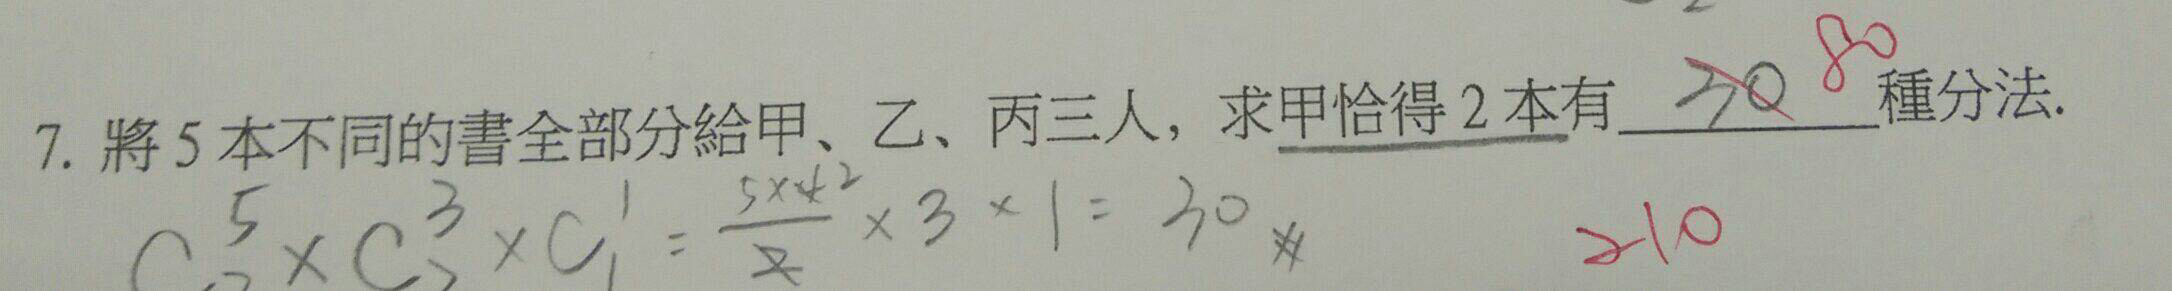 7. 將5本不同的書全部分給甲、乙、丙三人，求甲恰得2本有 30 80 種分法.
C⁵₂ × C³₂ × C¹₁ = 5×4² / 2 × 3 × 1 = 30 #
210